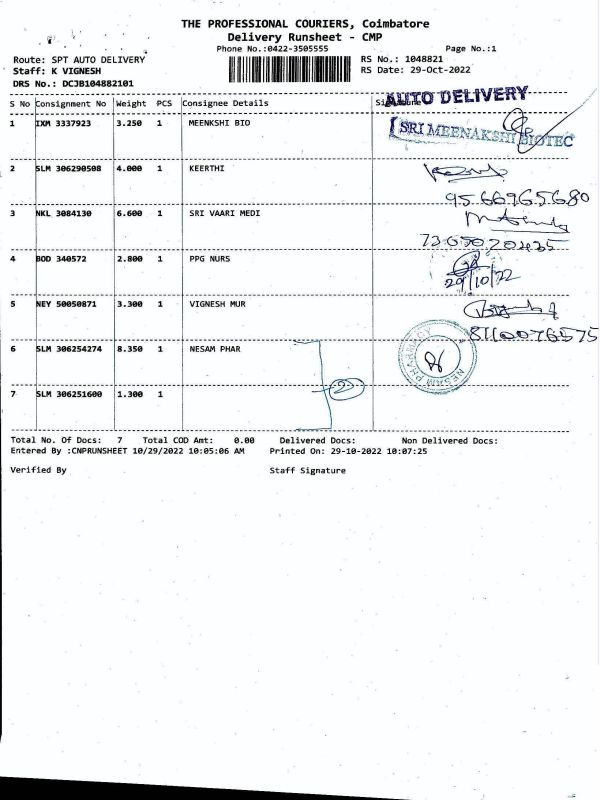 THE PROFESSIONAL COURIERS, Coimbatore
Delivery Runsheet - CMP
Phone No.:0422-3505555 Page No.:1
Route: SPT AUTO DELIVERY RS No.: 1048821
Staff: K VIGNESH RS Date: 29-Oct-2022
DRS No.: DCJB104882101
AUTO DELIVERY
S No Consignment No Weight PCS Consignee Details Signature
1 IXM 3337923 3.250 1 MEENKSHI BIO
SRI MEENAKSHI BIOTEC
2 SLM 306290508 4.000 1 KEERTHI
9566965680
3 NKL 3084130 6.600 1 SRI VAARI MEDI
4 BOD 340572 2.800 1 PPG NURS
29/10/22
5 NEY 50050871 3.300 1 VIGNESH MUR
8110076575
6 SLM 306254274 8.350 1 NESAM PHAR
NESAM PHARMACY
7 SLM 306251600 1.300 1
2
Total No. Of Docs: 7 Total COD Amt: 0.00 Delivered Docs: Non Delivered Docs:
Entered By :CNPRUNSHEET 10/29/2022 10:05:06 AM Printed On: 29-10-2022 10:07:25
Verified By Staff Signature